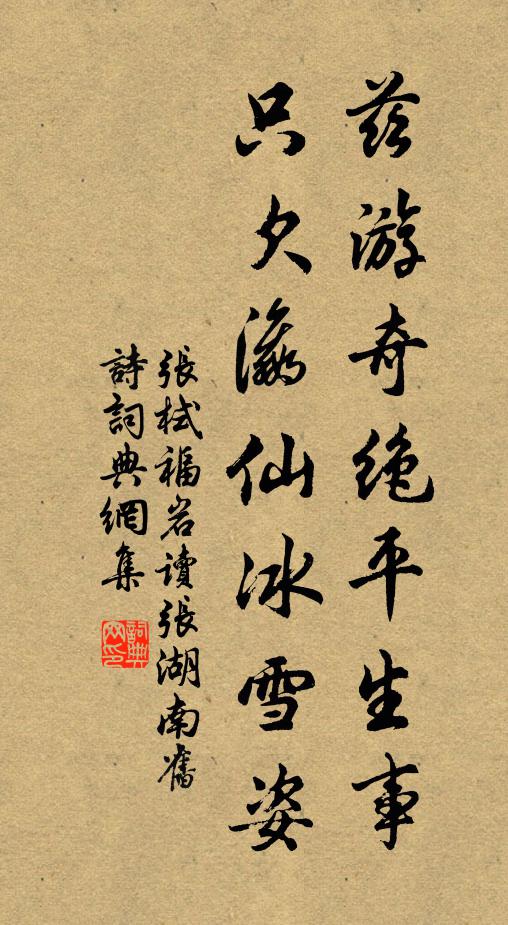 茲游奇絶平生事
只欠瀛仙冰雪姿
張栻福岩讀張湖南舊
詩詞典網集
詞典網印